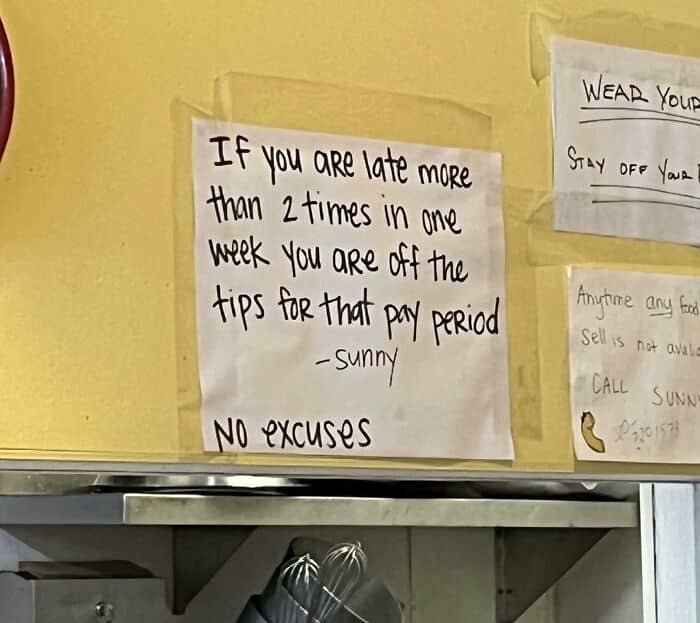 If you are late more
than 2 times in one
week you are off the
tips for that pay period
-sunny
No excuses
WEAR YOUR
STAY OFF YOUR
Anytime any food
sell is not
CALL SUNNY